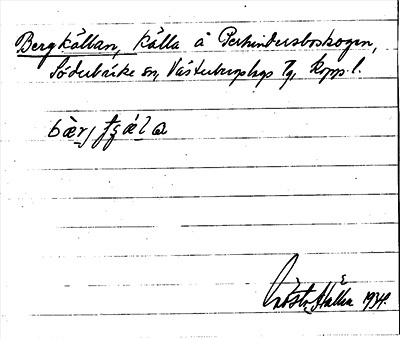 Bergkällan, källa å Perhindersboskogen,
Söderbärke sn, Västerbergslags Tg, Kopp. l.
bær̥j ʈʂæla
Gösta 1934.